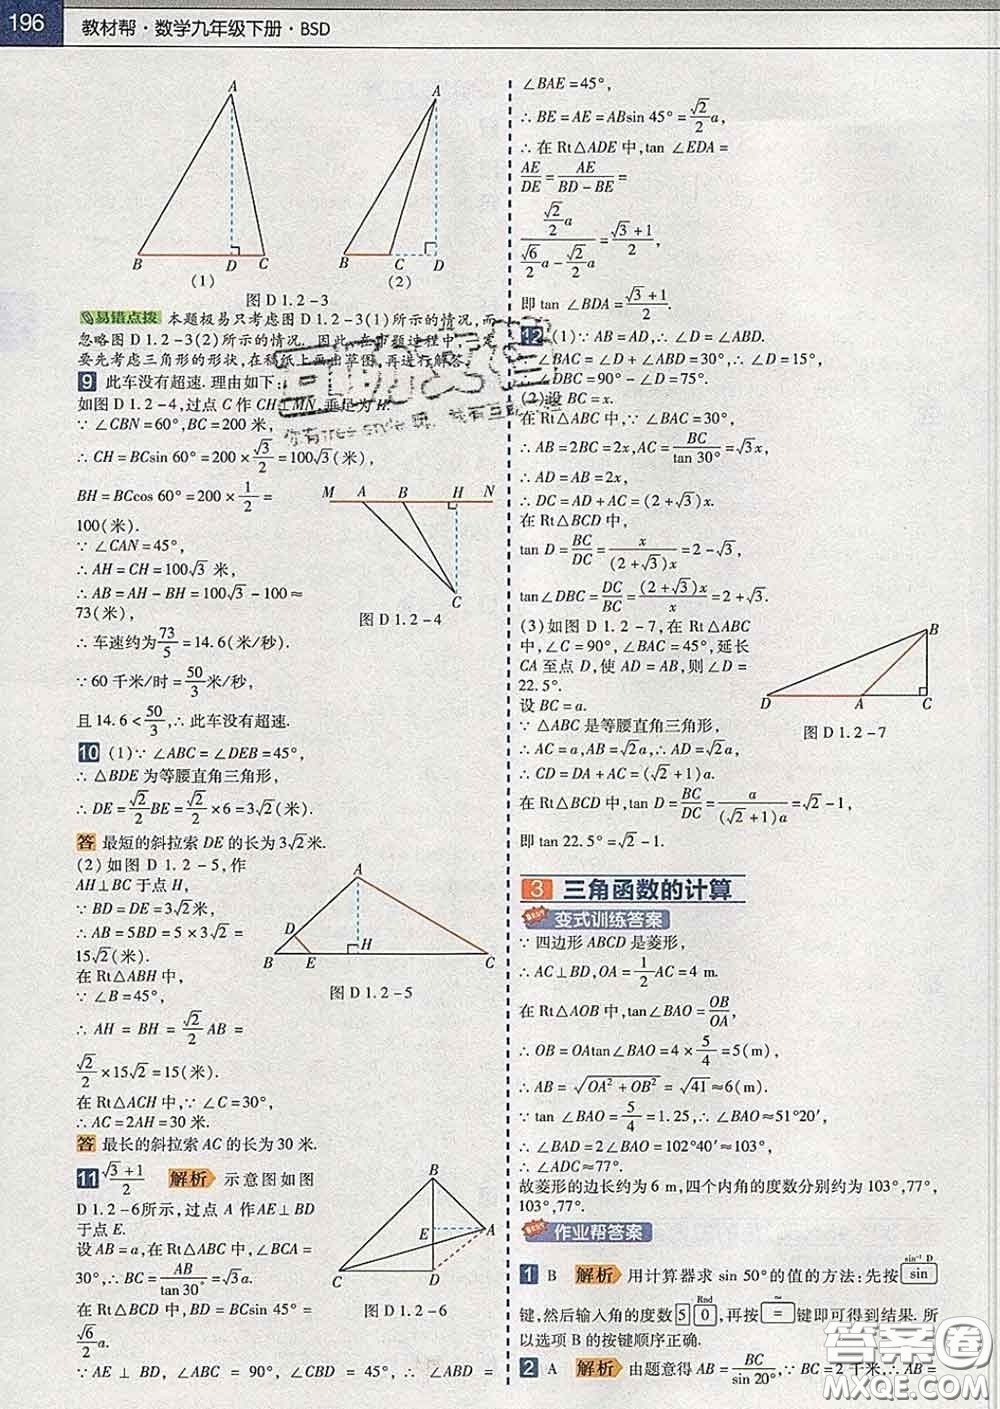 196
教材帮·数学九年级下册·BSD
A A
B D C B C D
(1) (2)
图 D 1.2-3
易错点拨 本题极易只考虑图 D 1.2-3(1)所示的情况,而
忽略图 D 1.2-3(2)所示的情况. 因此,在审题过程中,一定
要先考虑三角形的形状,在稿纸上画出草图,再进行解答.
9 此车没有超速. 理由如下:
如图 D 1.2-4,过点 C 作 CH⊥MN,垂足为 H.
∵∠CBN=60°,BC=200 米,
∴CH=BCsin 60°=200×√3/2=100√3(米),
BH=BCcos 60°=200×1/2=
100(米).
∵∠CAN=45°,
∴AH=CH=100√3 米,
∴AB=AH-BH=100√3-100≈
73(米),
∴车速约为73/5=14.6(米/秒).
∵60 千米/时=50/3米/秒,
且 14.6<50/3,∴此车没有超速.
M A B H N
C
图 D 1.2-4
10 (1)∵∠ABC=∠DEB=45°,
∴△BDE 为等腰直角三角形,
∴DE=√2/2BE=√2/2×6=3√2(米).
答 最短的斜拉索 DE 的长为 3√2米.
(2)如图 D 1.2-5,作
AH⊥BC 于点 H,
∵BD=DE=3√2米,
∴AB=5BD=5×3√2=
15√2(米).
在 Rt△ABH 中,
∵∠B=45°,
∴AH=BH=√2/2AB=
√2/2×15√2=15(米).
在 Rt△ACH 中,∵∠C=30°,
∴AC=2AH=30 米.
答 最长的斜拉索 AC 的长为 30 米.
A
D
H
B E C
图 D 1.2-5
11 (√3+1)/2 解析 示意图如图
D 1.2-6所示,过点 A 作AE⊥BD
于点 E.
设 AB=a,在 Rt△ABC 中,∠BCA=
30°,∴BC=AB/tan 30°=√3a.
在 Rt△BCD 中,BD=BCsin 45°=
√6/2a.
∵AE⊥BD,∠ABC=90°,∠CBD=45°,∴∠ABD=
B
E
A
C D
图 D 1.2-6
∠BAE=45°,
∴BE=AE=ABsin 45°=√2/2a,
∴在 Rt△ADE 中,tan ∠EDA=
AE/DE=AE/(BD-BE)=
(√2/2a)/(√6/2a-√2/2a)=(√3+1)/2,
即 tan ∠BDA=(√3+1)/2.
12 (1)∵AB=AD,∴∠D=∠ABD.
∵∠BAC=∠D+∠ABD=30°,∴∠D=15°,
∴∠DBC=90°-∠D=75°.
(2)设 BC=x.
在 Rt△ABC 中,∵∠BAC=30°,
∴AB=2BC=2x,AC=BC/tan 30°=√3x,
∴AD=AB=2x,
∴DC=AD+AC=(2+√3)x.
在 Rt△BCD 中,
tan D=BC/DC=x/((2+√3)x)=2-√3,
tan∠DBC=DC/BC=((2+√3)x)/x=2+√3.
(3)如图 D 1.2-7,在 Rt△ABC
中,∠C=90°,∠BAC=45°,延长
CA 至点 D,使 AD=AB,则∠D=
22.5°.
设 BC=a.
∵△ABC 是等腰直角三角形,
∴AC=a,AB=√2a,∴AD=√2a,
∴CD=DA+AC=(√2+1)a.
在 Rt△BCD 中,tan D=BC/DC=a/((√2+1)a)=√2-1,
即 tan 22.5°=√2-1.
B
D A C
图 D 1.2-7
3 三角函数的计算
变式训练答案
∵四边形 ABCD 是菱形,
∴AC⊥BD,OA=1/2AC=4 m.
在 Rt△AOB 中,tan∠BAO=OB/OA,
∴OB=OAtan∠BAO=4×5/4=5(m),
∴AB=√(OA²+OB²)=√41≈6(m).
∵tan ∠BAO=5/4=1.25,∴∠BAO≈51°20′,
∴∠BAD=2∠BAO=102°40′≈103°,
∴∠ADC≈77°.
故菱形的边长约为 6 m,四个内角的度数分别约为 103°,77°,
103°,77°.
作业帮答案
1 B 解析 用计算器求 sin 50°的值的方法:先按 sin⁻¹ D sin
键,然后输入角的度数 5 Rnd 0,再按 ≈ = 键即可得到结果. 所
以选项 B 的按键顺序正确.
2 A 解析 由题意得 AB=BC/sin 20°,∵BC=2 千米,∴AB=
答案圈
MXQE.COM